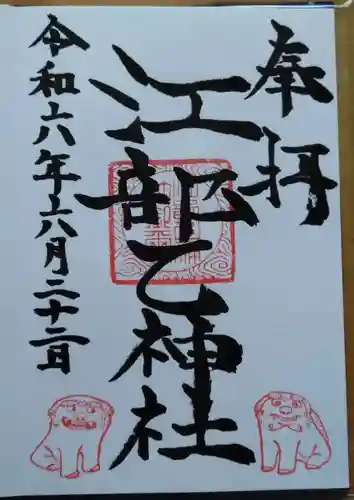 奉拝
江部乙神社
令和六年六月二十二日